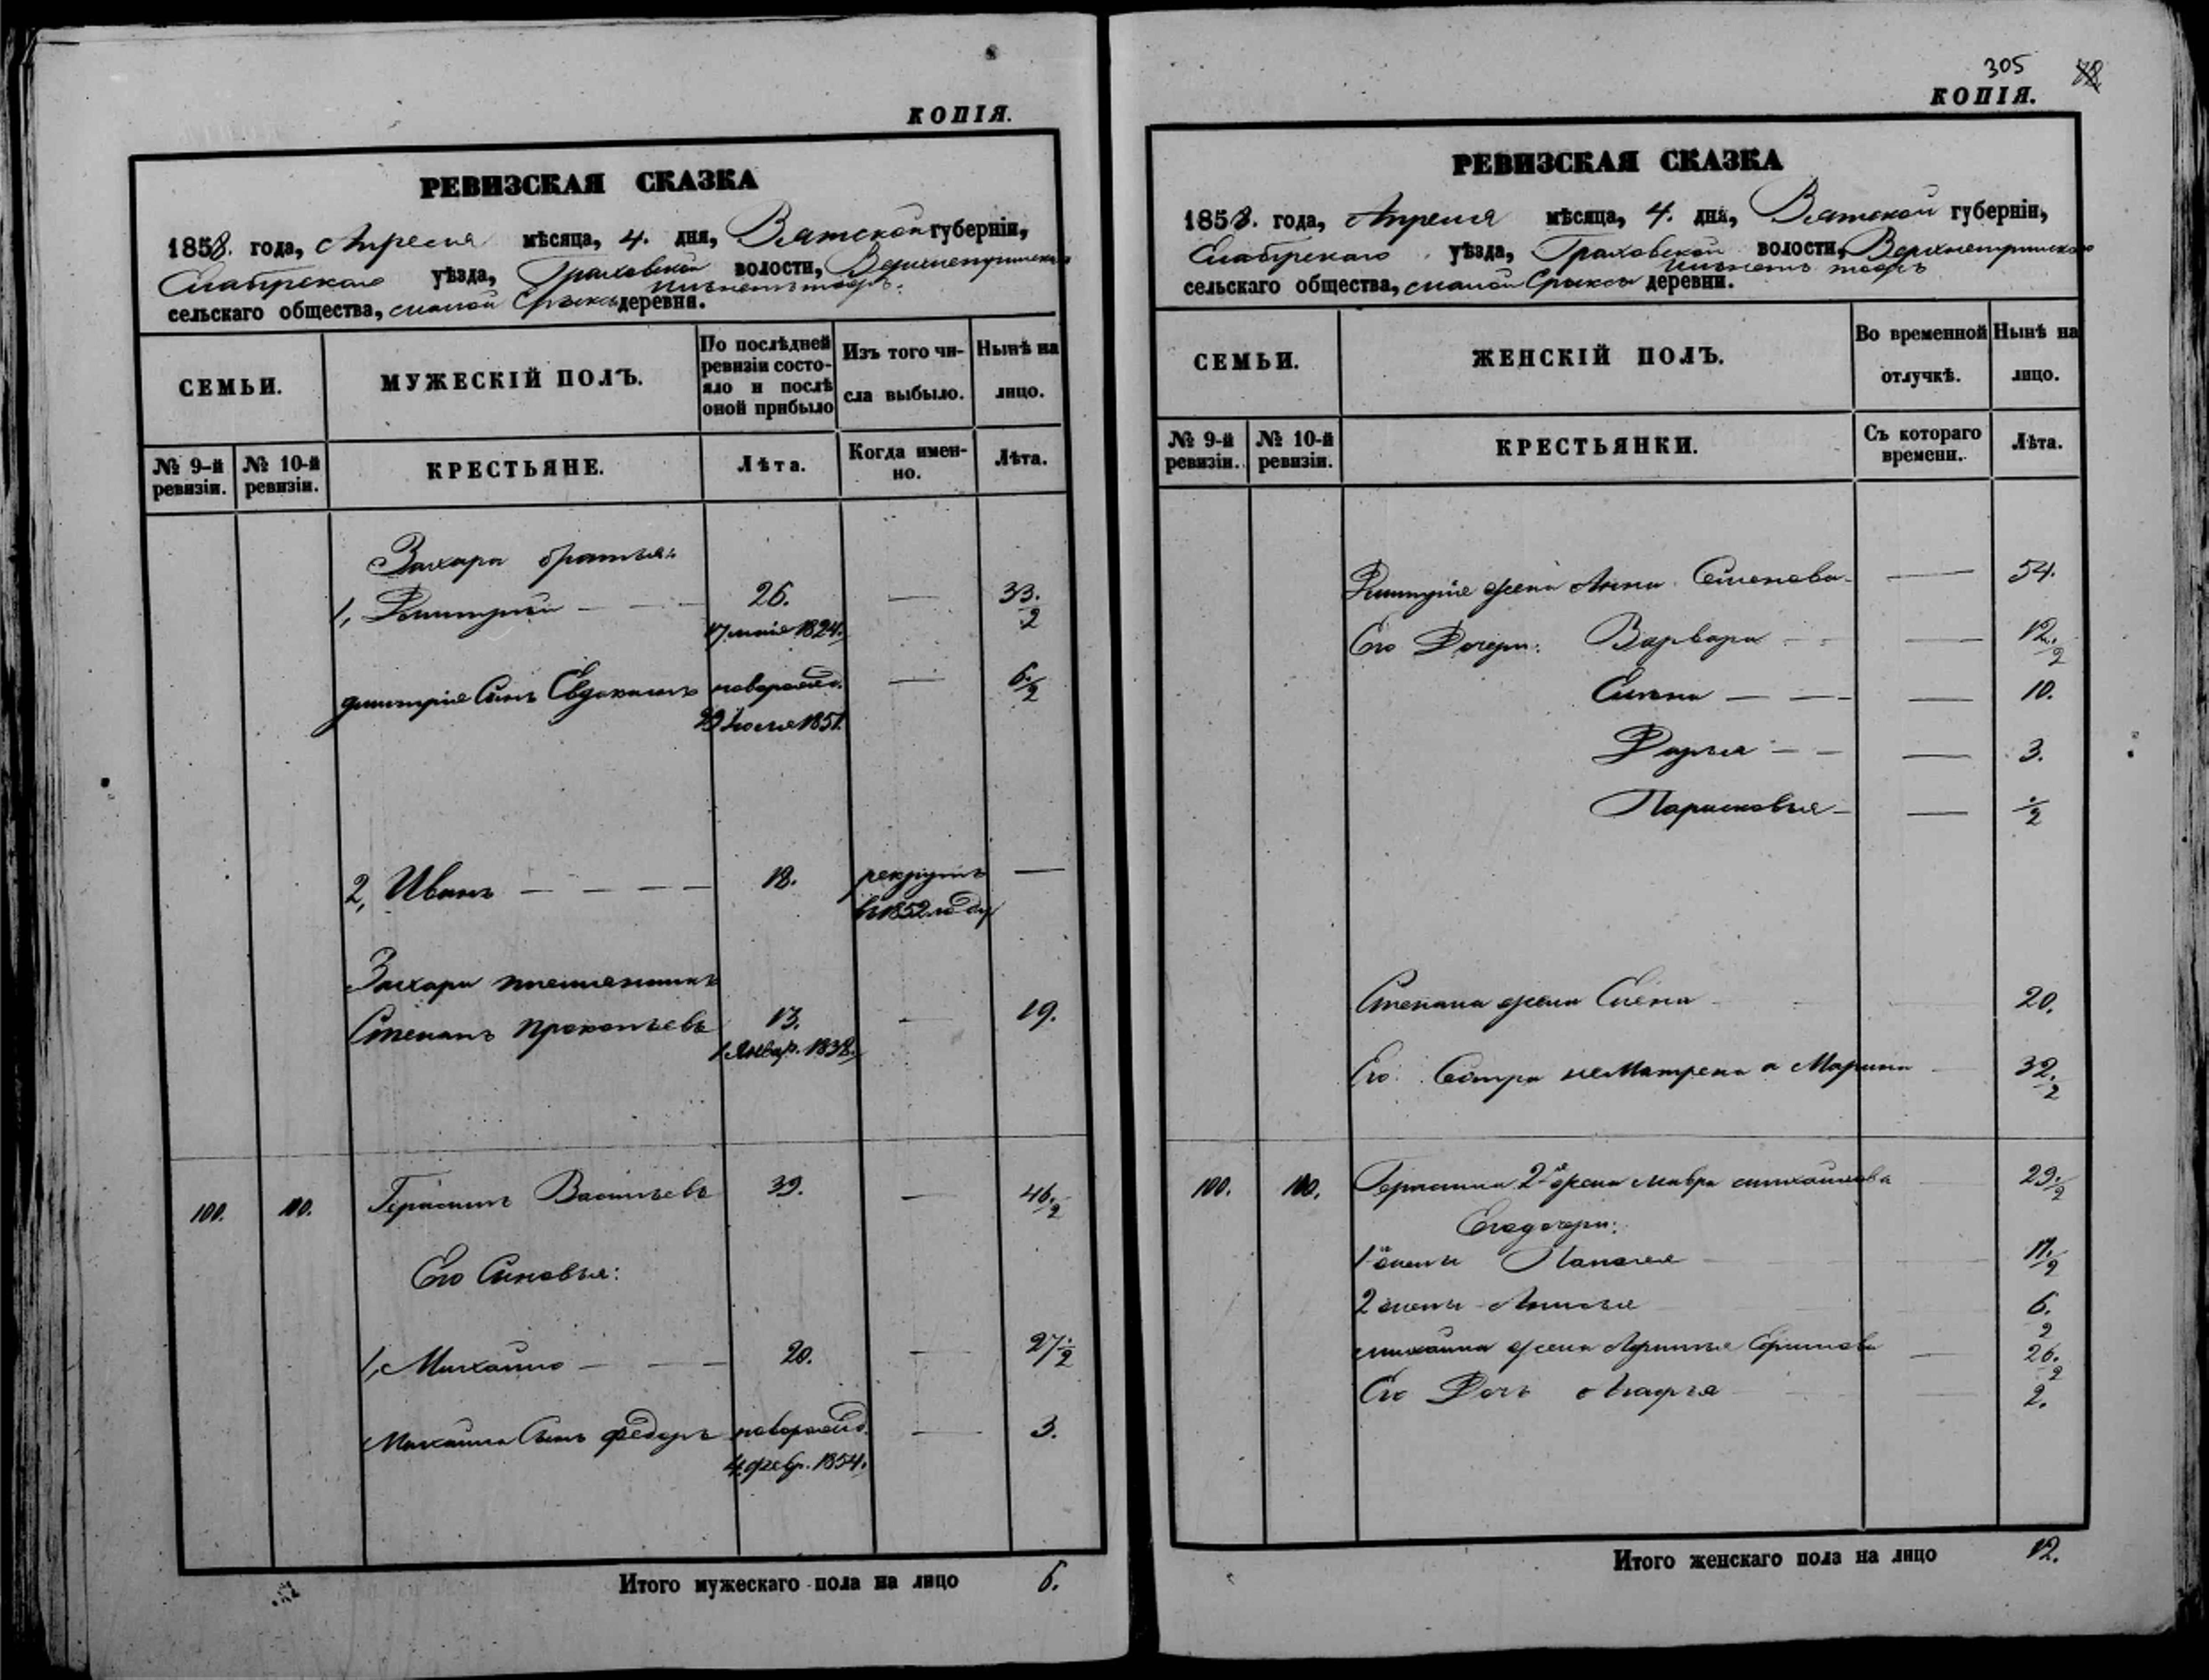 КОПІЯ.
РЕВИЗСКАЯ СКАЗКА
1858. года, Апреля мѣсяца, 4. дня, Вятской губерніи,
Елабужскаго уѣзда, Граховской волости,
сельскаго общества, деревни.
СЕМЬИ.
МУЖЕСКІЙ ПОЛЪ.
По послѣдней ревизіи состо-
яло и послѣ оной прибыло
Изъ того чи-
сла выбыло.
Нынѣ на лицо.
№ 9-й ревизіи.
№ 10-й ревизіи.
КРЕСТЬЯНЕ.
Лѣта.
Когда имен-
но.
Лѣта.
Захара братья:
1, Дмитрій — — 26. — 33. 1/2
17 маія 1824.
Дмитрія Сынъ Евдокимъ новорожд. — 6. 1/2
1851.
2, Иванъ — — — — 18. рекрутъ —
въ 1852 году
Захара племянникъ
Степанъ Прокопьевъ 13. — 19.
1 Январ. 1838.
100. 100. Герасимъ Васильевъ 39. — 46. 1/2
Его Сыновья:
1, Михайло — — 20. — 27 1/2
Михаила Сынъ Федоръ новорожд. — 3.
4 февр. 1854.
Итого мужескаго пола на лицо 6.
305
КОПІЯ.
РЕВИЗСКАЯ СКАЗКА
1858. года, Апреля мѣсяца, 4. дня, Вятской губерніи,
Елабужскаго уѣзда, Граховской волости,
сельскаго общества, деревни.
СЕМЬИ.
ЖЕНСКІЙ ПОЛЪ.
Во временной отлучкѣ.
Нынѣ на лицо.
№ 9-й ревизіи.
№ 10-й ревизіи.
КРЕСТЬЯНКИ.
Съ котораго времени.
Лѣта.
Дмитрія жена Анна Семенова — 34.
Его Дочери: Варвара — 12. 1/2
Елена — — — 10.
Дарья — — — 3.
Парасковья — — 1/2
Степана жена Елена 20.
Его Сестра не Матрена а Марина 32. 1/2
100. 100. Герасима 2я жена Мавра Михайлова 29. 1/2
Его дочери:
1й жены 17. 1/2
2 жены Анисья 6. 1/2
Михаила жена Ефимова — 26. 1/2
Его Дочь Агафья 2.
Итого женскаго пола на лицо 12.